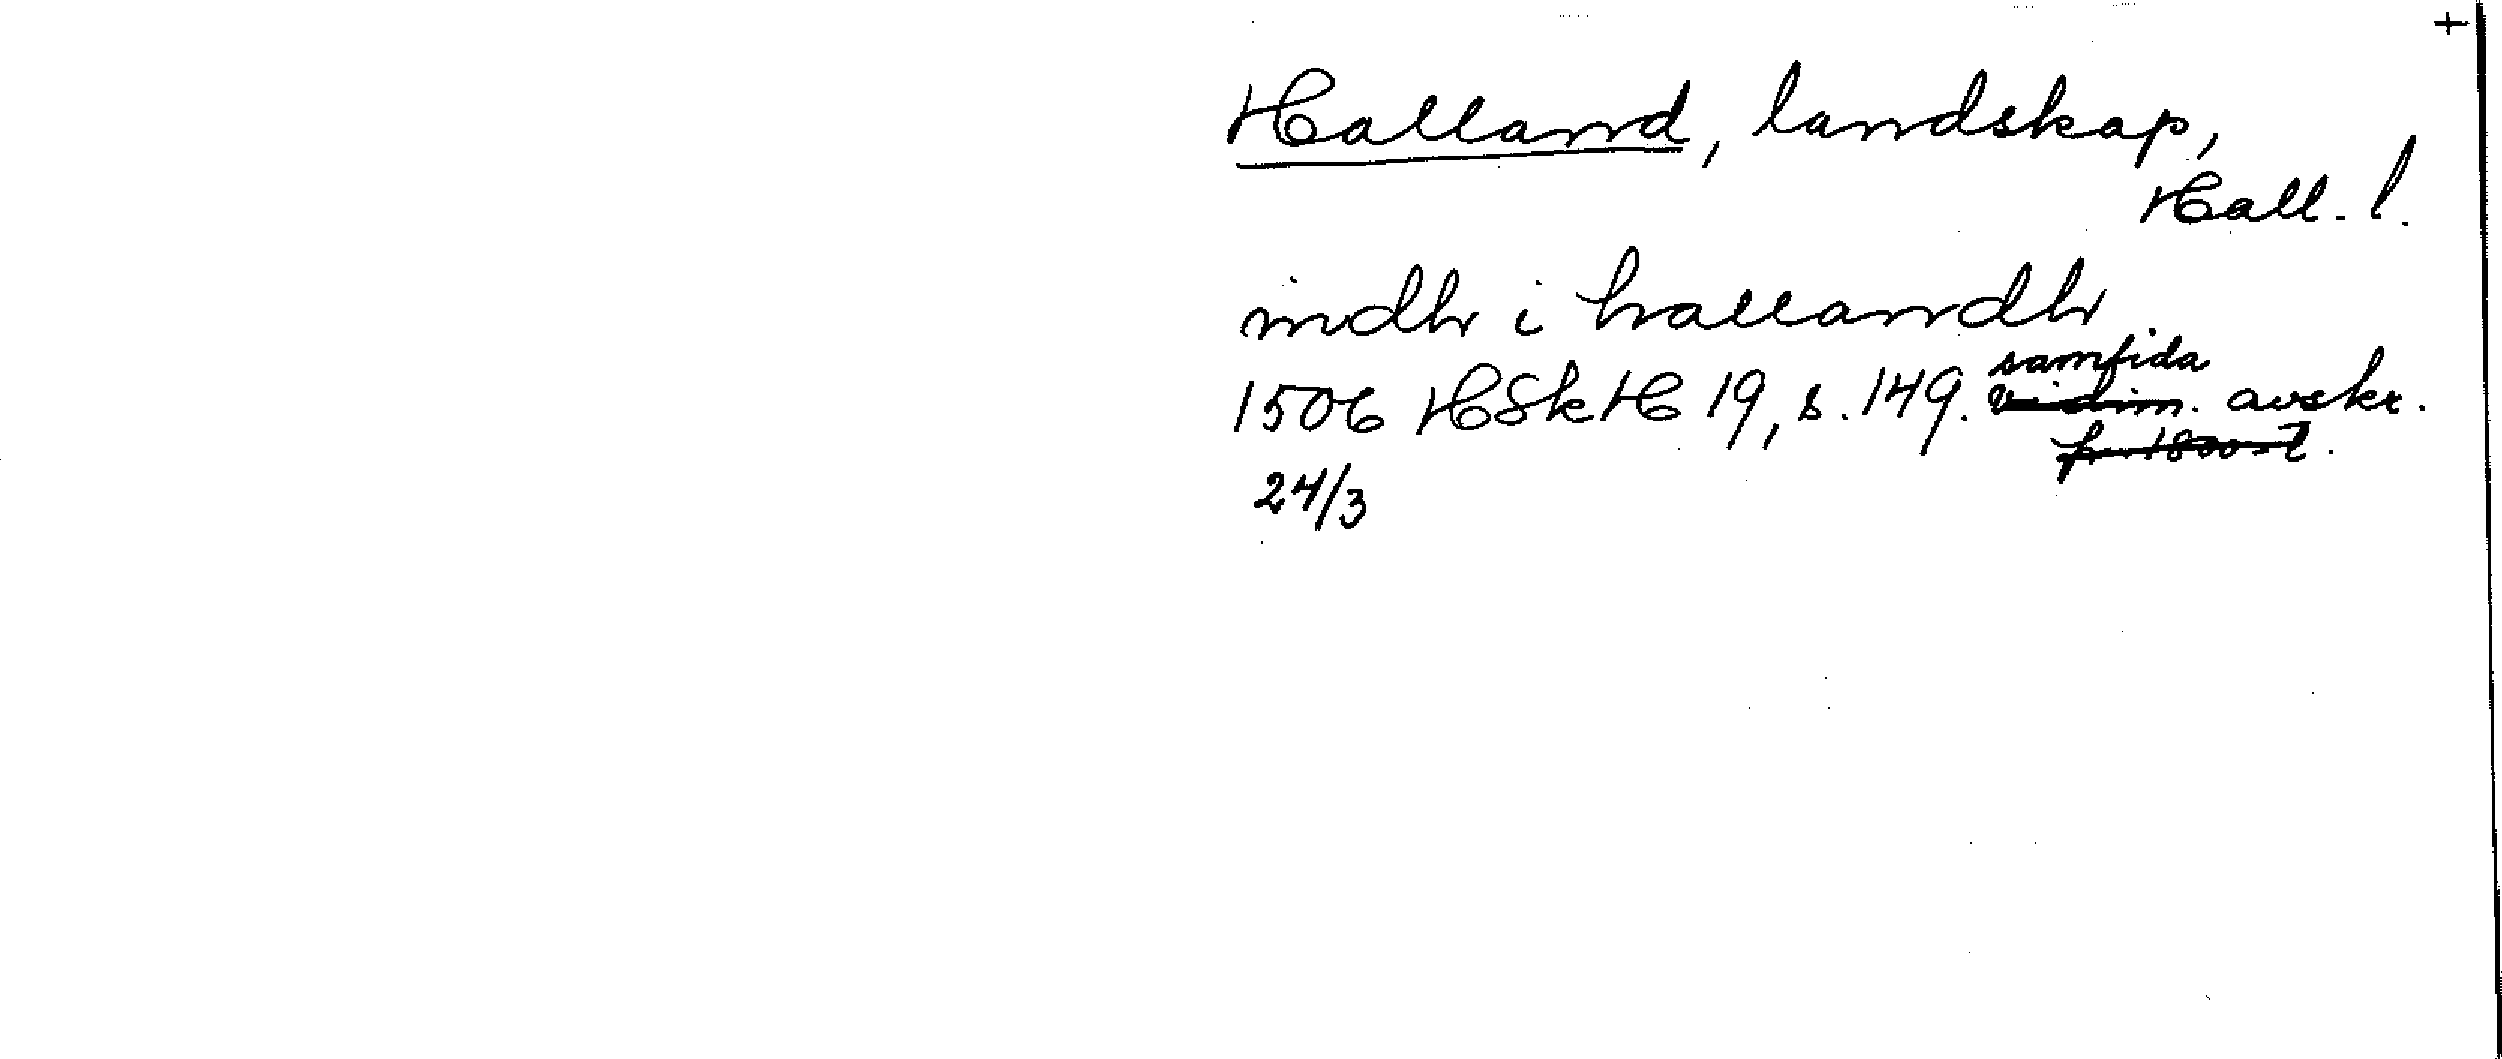 +
Halland, landskap,
Hall. l.
indh i hallandh
samtida
1506 HSkH 19, s. 149. vidim. avskr.
24/3